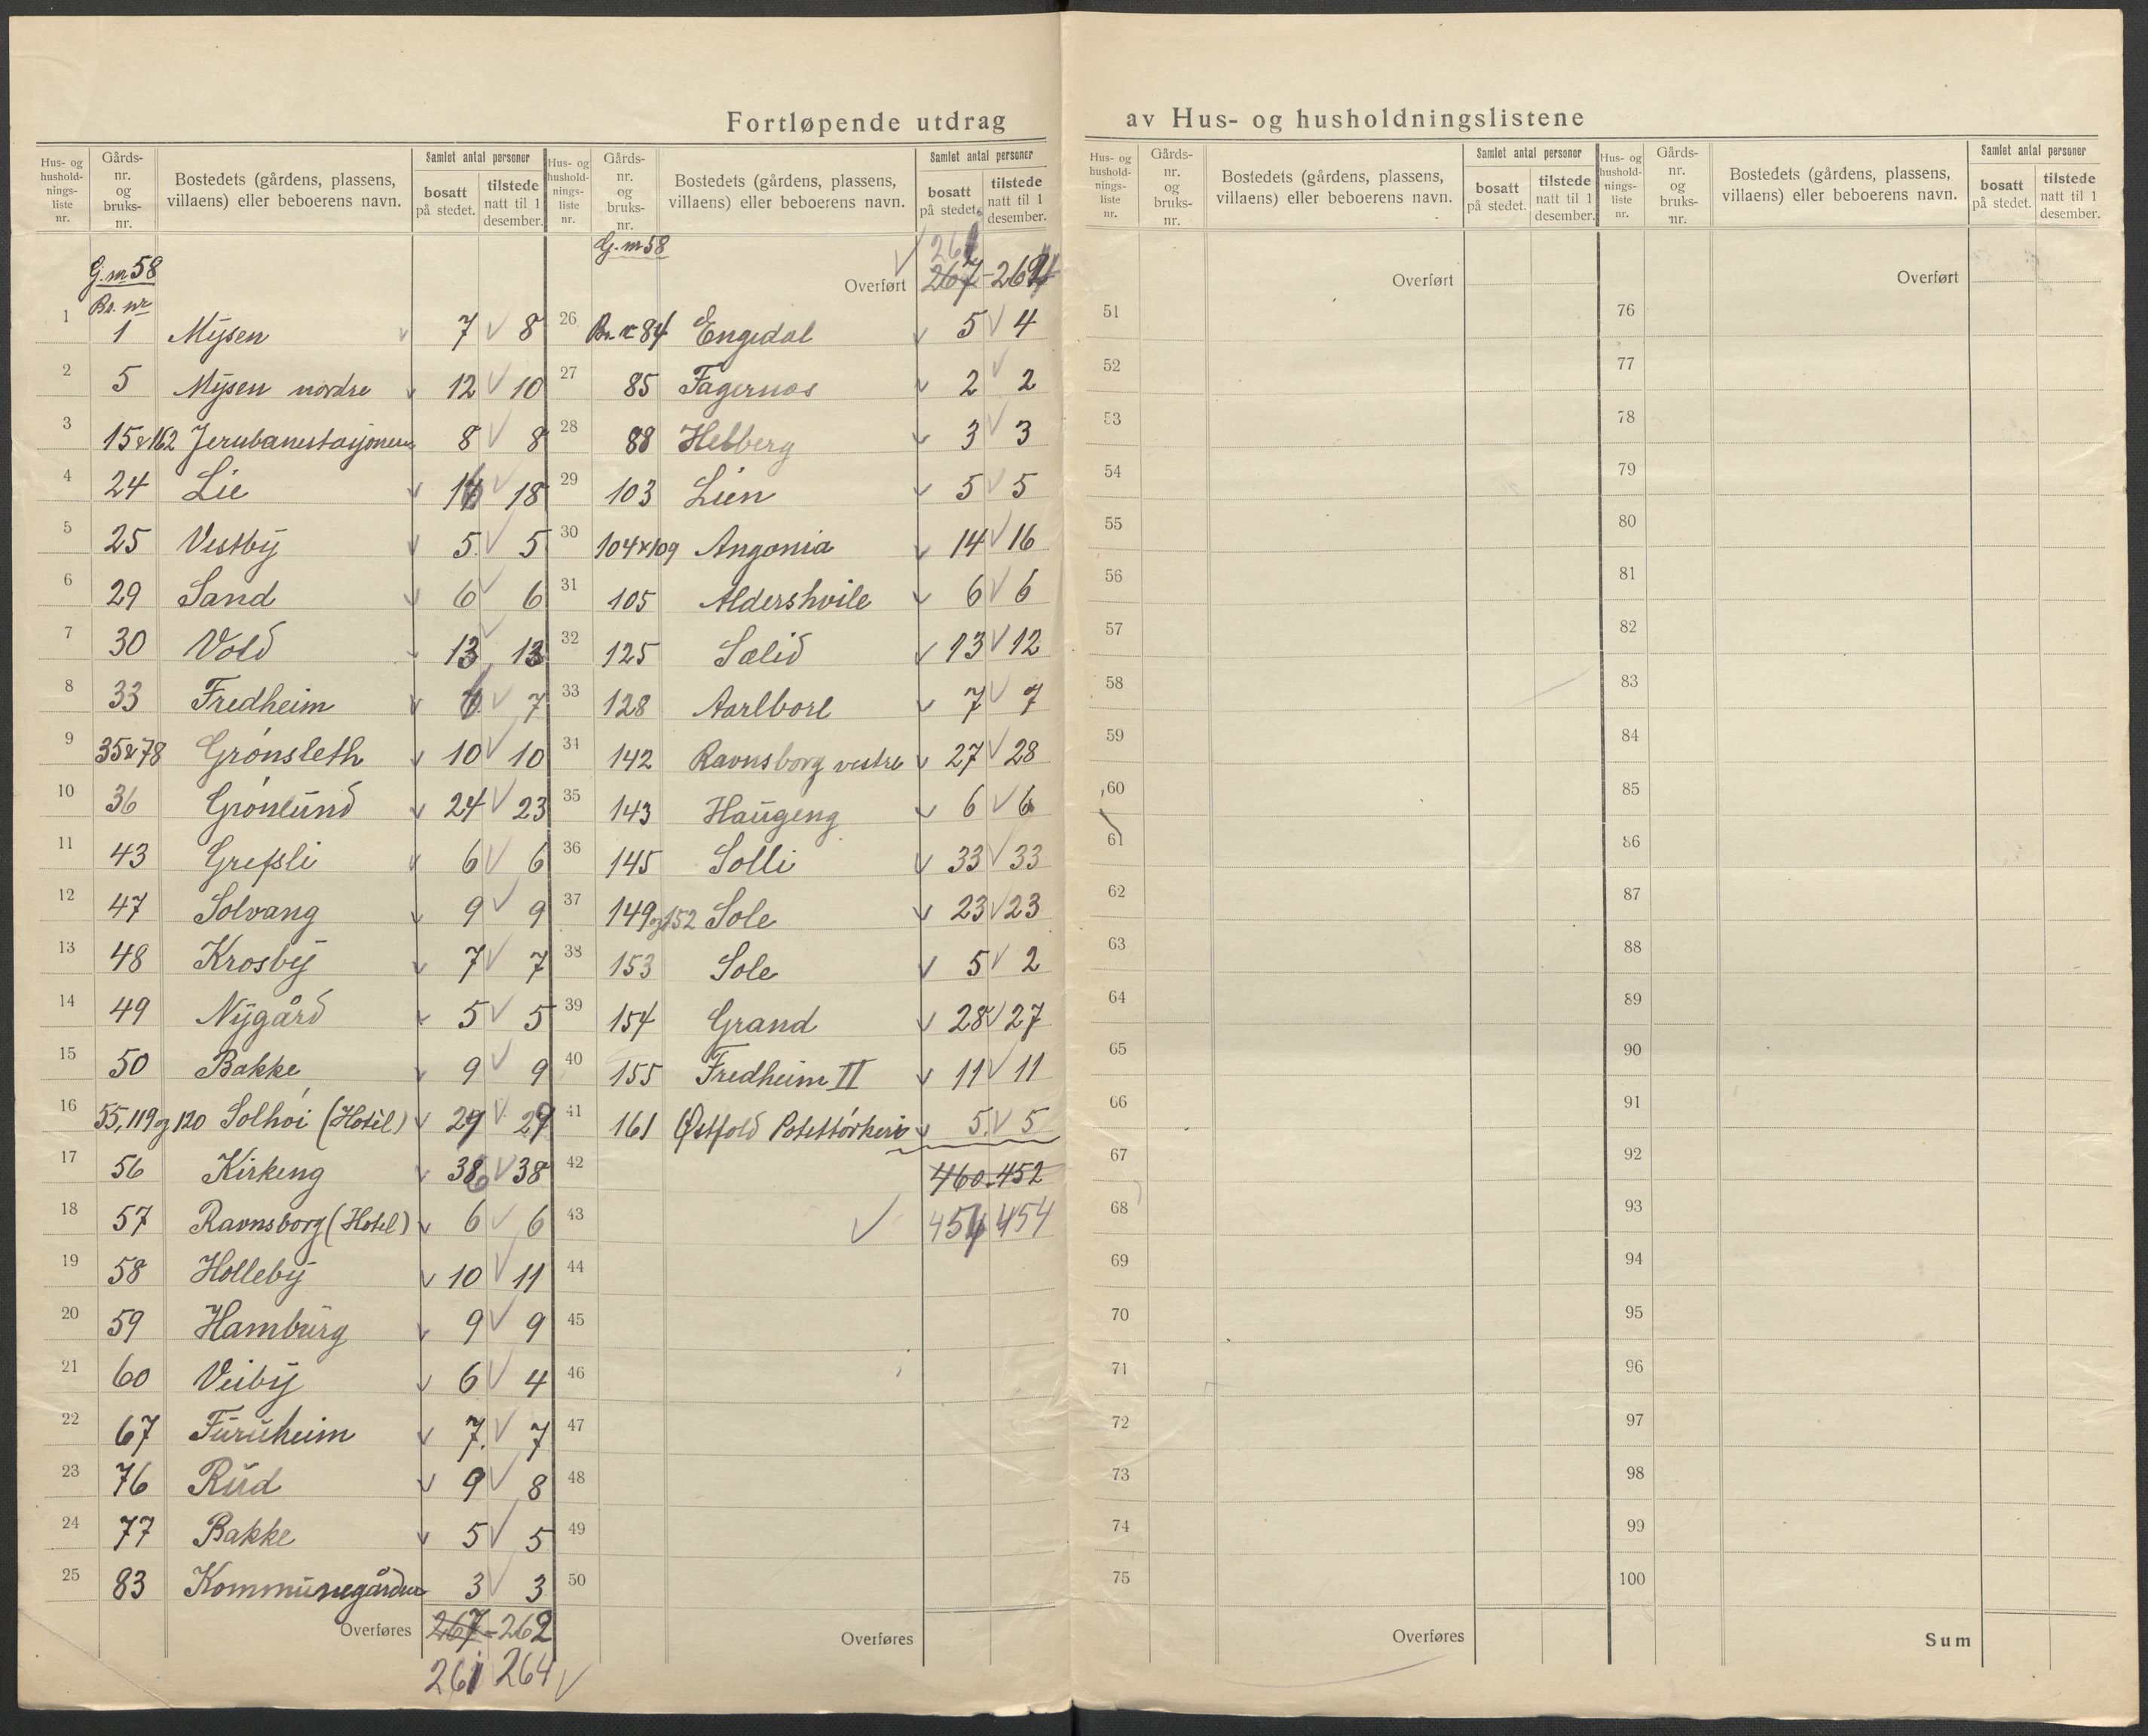 Fortløpende utdrag av Hus- og husholdningslistene
Hus- og hushold-nings-liste nr. Gårds-nr. og bruks-nr. Bostedets (gårdens, plassens, villaens) eller beboerens navn. Samlet antal personer bosatt på stedet. tilstede natt til 1 desember.
G. nr 58
Br. nr
1 1 Mysen 7 8
2 5 Mysen nordre 12 10
3 15 & 162 Jernbanestasjonen 8 8
4 24 Lie 18
5 25 Vestby 5 5
6 29 Sand 6 6
7 30 Vold 13 13
8 33 Fredheim 6 7
9 35 & 78 Grønsleth 10 10
10 36 Grønlund 24 23
11 43 Grefsli 6 6
12 47 Solvang 9 9
13 48 Krosby 7 7
14 49 Nygård 5 5
15 50 Bakke 9 9
16 55, 119 og 120 Solhøi (Hotel) 29 29
17 56 Kirkeng 38 38
18 57 Ravnsborg (Hotel) 6 6
19 58 Holleby 10 11
20 59 Hamburg 9 9
21 60 Veiby 6 4
22 67 Furuheim 7 7
23 76 Rud 9 8
24 77 Bakke 5 5
25 83 Kommunegården 3 3
Overføres 267 - 262
261 264
Hus- og hushold-nings-liste nr. Gårds-nr. og bruks-nr. Bostedets (gårdens, plassens, villaens) eller beboerens navn. Samlet antal personer bosatt på stedet. tilstede natt til 1 desember.
G. nr 58
261
Overført 267 - 264
26 Br. nr 84 Engedal 5 4
27 85 Fagernes 2 2
28 88 Helberg 3 3
29 103 Lien 5 5
30 104 & 109 Angonia 14 16
31 105 Aldershvile 6 6
32 125 Solid 13 12
33 128 7 7
34 142 Ravnsborg vestre 27 28
35 143 Haugeng 6 6
36 145 Solli 33 33
37 149 og 152 Sole 23 23
38 153 Sole 5 2
39 154 Grand 28 27
40 155 Fredheim II 11 11
41 161 Østfold Potettørkeri 5 5
42 460 - 452
43 454 454
44
45
46
47
48
49
50
Overføres
Hus- og hushold-nings-liste nr. Gårds-nr. og bruks-nr. Bostedets (gårdens, plassens, villaens) eller beboerens navn. Samlet antal personer bosatt på stedet. tilstede natt til 1 desember.
Overført
51
52
53
54
55
56
57
58
59
60
61
62
63
64
65
66
67
68
69
70
71
72
73
74
75
Overføres
Hus- og hushold-nings-liste nr. Gårds-nr. og bruks-nr. Bostedets (gårdens, plassens, villaens) eller beboerens navn. Samlet antal personer bosatt på stedet. tilstede natt til 1 desember.
Overført
76
77
78
79
80
81
82
83
84
85
86
87
88
89
90
91
92
93
94
95
96
97
98
99
100
Sum